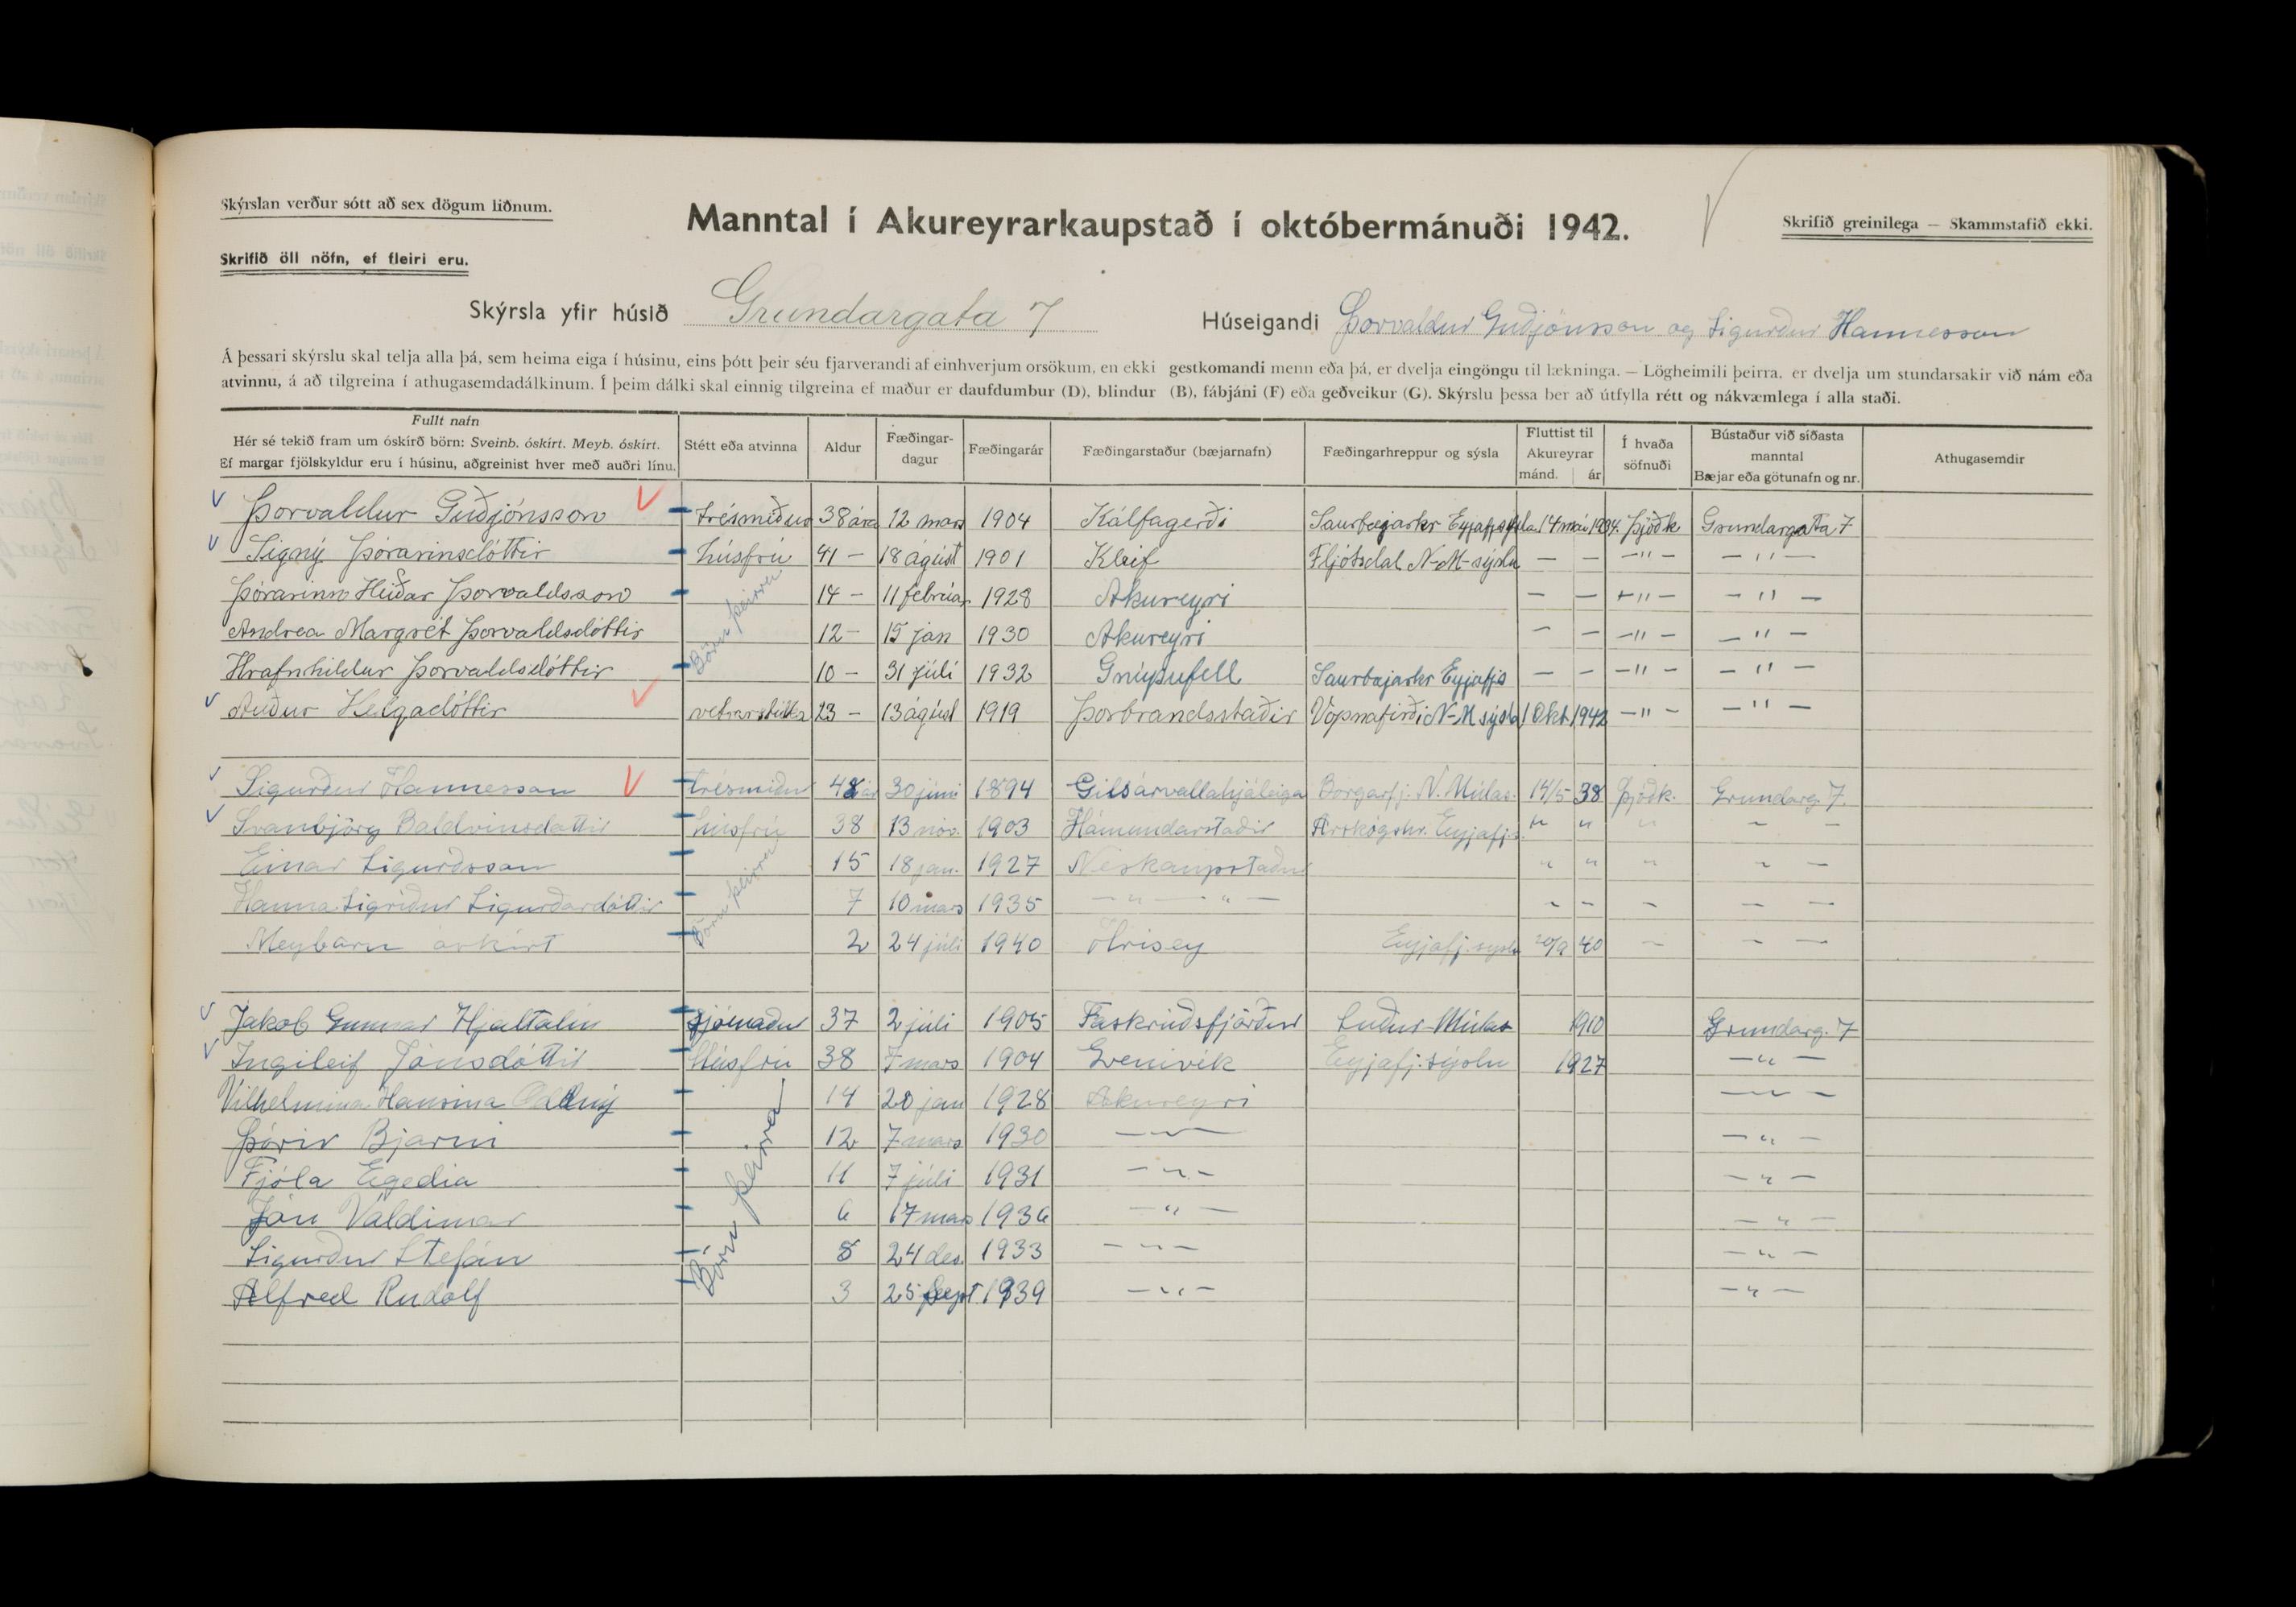 Skýrslan verður sótt að sex dögum liðnum.
Manntal í Akureyrarkaupstað í októbermánuði 1942.
Skrifið greinilega — Skammstafið ekki.
Skrifið öll nöfn, ef fleiri eru.
Skýrsla yfir húsið Grundargata 7 Húseigandi Þorvaldur Guðjónsson og Sigurður Hannesson
Á þessari skýrslu skal telja alla þá, sem heima eiga í húsinu, eins þótt þeir séu fjarverandi af einhverjum orsökum, en ekki gestkomandi menn eða þá, er dvelja eingöngu til lækninga. — Lögheimili þeirra, er dvelja um stundarsakir við nám eða
atvinnu, á að tilgreina í athugasemdadálkinum. Í þeim dálki skal einnig tilgreina ef maður er daufdumbur (D), blindur (B), fábjáni (F) eða geðveikur (G). Skýrslu þessa ber að útfylla rétt og nákvæmlega í alla staði.
Fullt nafn
Hér sé tekið fram um óskírð börn: Sveinb. óskírt. Meyb. óskírt.
Ef margar fjölskyldur eru í húsinu, aðgreinist hver með auðri línu.
Stétt eða atvinna
Aldur
Fæðingar-
dagur
Fæðingarár
Fæðingarstaður (bæjarnafn)
Fæðingarhreppur og sýsla
Fluttist til
Akureyrar
mánd. ár
Í hvaða
söfnuði
Bústaður við síðasta
manntal
Bæjar eða götunafn og nr.
Athugasemdir
Þorvaldur Guðjónsson trésmiður 38 ára 12 mars 1904 Kálfagerði Saurbæjarhr Eyjafjsýsla 14 maí 1934. Þjóðk Grundargata 7
Signý Þórarinsdóttir húsfrú 41 — 18 ágúst 1901 Kleif Fljótsdal N-M-sýsla — — —"— —"—
Þórarinn Heiðar Þorvaldsson 14 — 11 febrúar 1928 Akureyri — — —"— —"—
Andrea Margrét Þorvaldsdóttir 12 — 15 jan 1930 Akureyri — — —"— —"—
Hrafnhildur Þorvaldsdóttir 10 — 31 júlí 1932 Gnúpufell Saurbæjarhr Eyjafjs — — —"— —"—
Börn þeirra
Auður Helgadóttir vetrarstúlka 23 — 13 ágúst 1919 Þorbrandsstaðir Vopnafirði N-M sýsla 1 Okt. 1942 —"— —"—
Sigurður Hannesson trésmiður 48 ár 30 júní 1894 Gilsárvallahjáleiga Borgarfj. N. Múlas. 14/5 38 Þjóðk. Grundarg. 7.
Svanbjörg Baldvinsdóttir húsfrú 38 13 nóv. 1903 Hámundarstaðir Árskógshr. Eyjafj.s. " " " — —
Einar Sigurðsson 15 18 jan. 1927 Neskaupstaður " " " " —
Hanna Sigríður Sigurðardóttir 7 10 mars 1935 —"— —"— — — — — —
Meybarn óskírt 2 24 júlí 1940 Hrísey Eyjafj. sýsla 20/9 40 — — —
Börn þeirra
Jakob Gunnar Hjaltalín sjómaður 37 2 júlí 1905 Fáskrúðsfjörður Suður-Múlas 1910 Grundarg. 7
Ingileif Jónsdóttir Húsfrú 38 7 mars 1904 Grenivík Eyjafj. sýslu 1927 —"—
Vilhelmína Hansína Oddný 14 20 jan 1928 Akureyri —"—
Þórir Bjarni 12 7 mars 1930 —"— —"—
Fjóla Egedia 11 7 júlí 1931 —"— —"—
Jón Valdimar 6 17 mars 1936 —"— —"—
Sigurður Stefán 8 24 des. 1933 —"— —"—
Alfred Rudolf 3 25 Sept 1939 —"— —"—
Börn þeirra